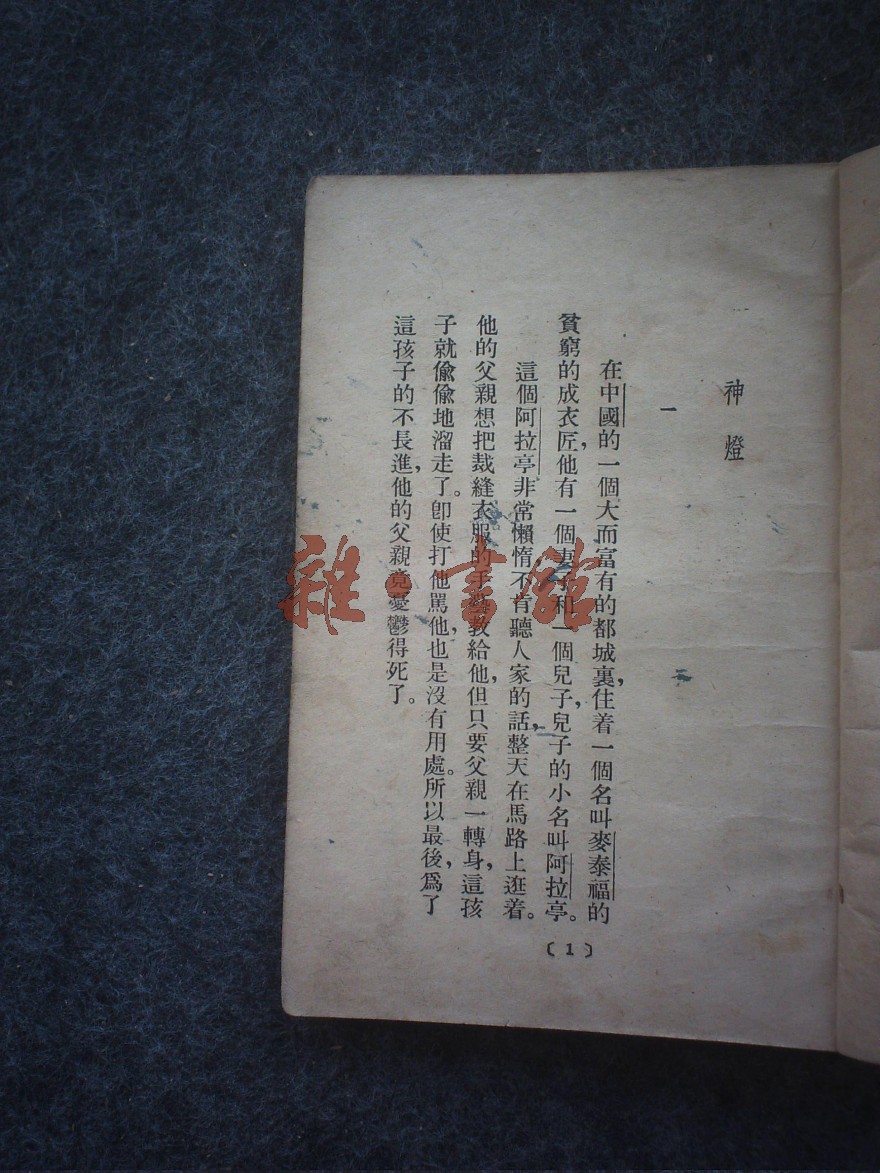 神燈
一
在中國的一個大而富有的都城裏,住着一個名叫麥泰福的
貧窮的成衣匠,他有一個妻子和一個兒子,兒子的小名叫阿拉亭。
這個阿拉亭非常懶惰不肯聽人家的話,整天在馬路上逛着。
他的父親想把裁縫衣服的手藝教給他,但只要父親一轉身,這孩
子就偸偸地溜走了。卽使打他罵他,也是沒有用處。所以最後,爲了
這孩子的不長進,他的父親竟憂鬱得死了。
〔1〕
雜·書館